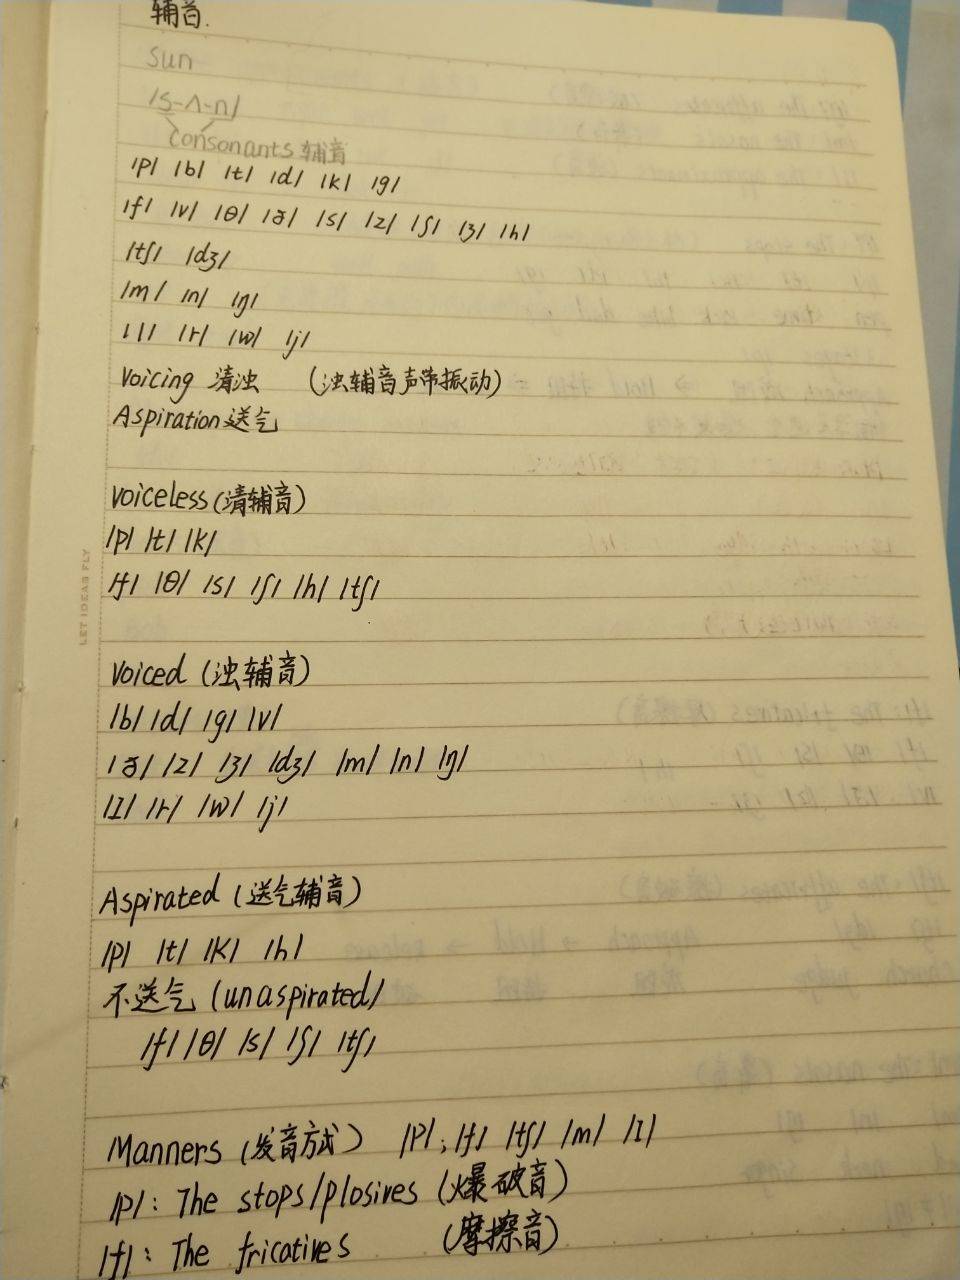 辅音.
sun
/s-ʌ-n/
consonants 辅音
/p/ /b/ /t/ /d/ /k/ /g/
/f/ /v/ /θ/ /ð/ /s/ /z/ /ʃ/ /ʒ/ /h/
/tʃ/ /dʒ/
/m/ /n/ /ŋ/
/l/ /r/ /w/ /j/
Voicing 清浊 (浊辅音声带振动)
Aspiration 送气
voiceless (清辅音)
/p/ /t/ /k/
/f/ /θ/ /s/ /ʃ/ /h/ /tʃ/
Voiced (浊辅音)
/b/ /d/ /g/ /v/
/ð/ /z/ /ʒ/ /dʒ/ /m/ /n/ /ŋ/
/I/ /r/ /w/ /j/
Aspirated (送气辅音)
/p/ /t/ /k/ /h/
不送气 (unaspirated)
/f/ /θ/ /s/ /ʃ/ /tʃ/
Manners (发音方式) /p/, /f/ /tʃ/ /m/ /I/
/p/: The stops/plosives (爆破音)
/f/: The fricatives (摩擦音)
LET IDEAS FLY